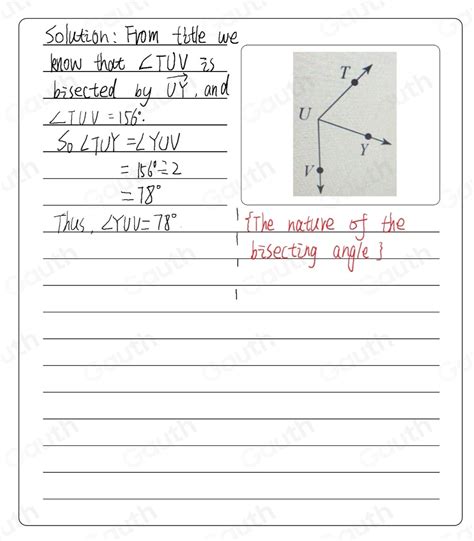 Solution: From title we
know that ∠TUV is
bisected by UY, and
∠TUV = 156°.
So ∠TUY = ∠YUV
= 156° ÷ 2
= 78°
Thus, ∠YUV = 78°
{The nature of the
bisecting angle}
T
U
Y
V
Gauth